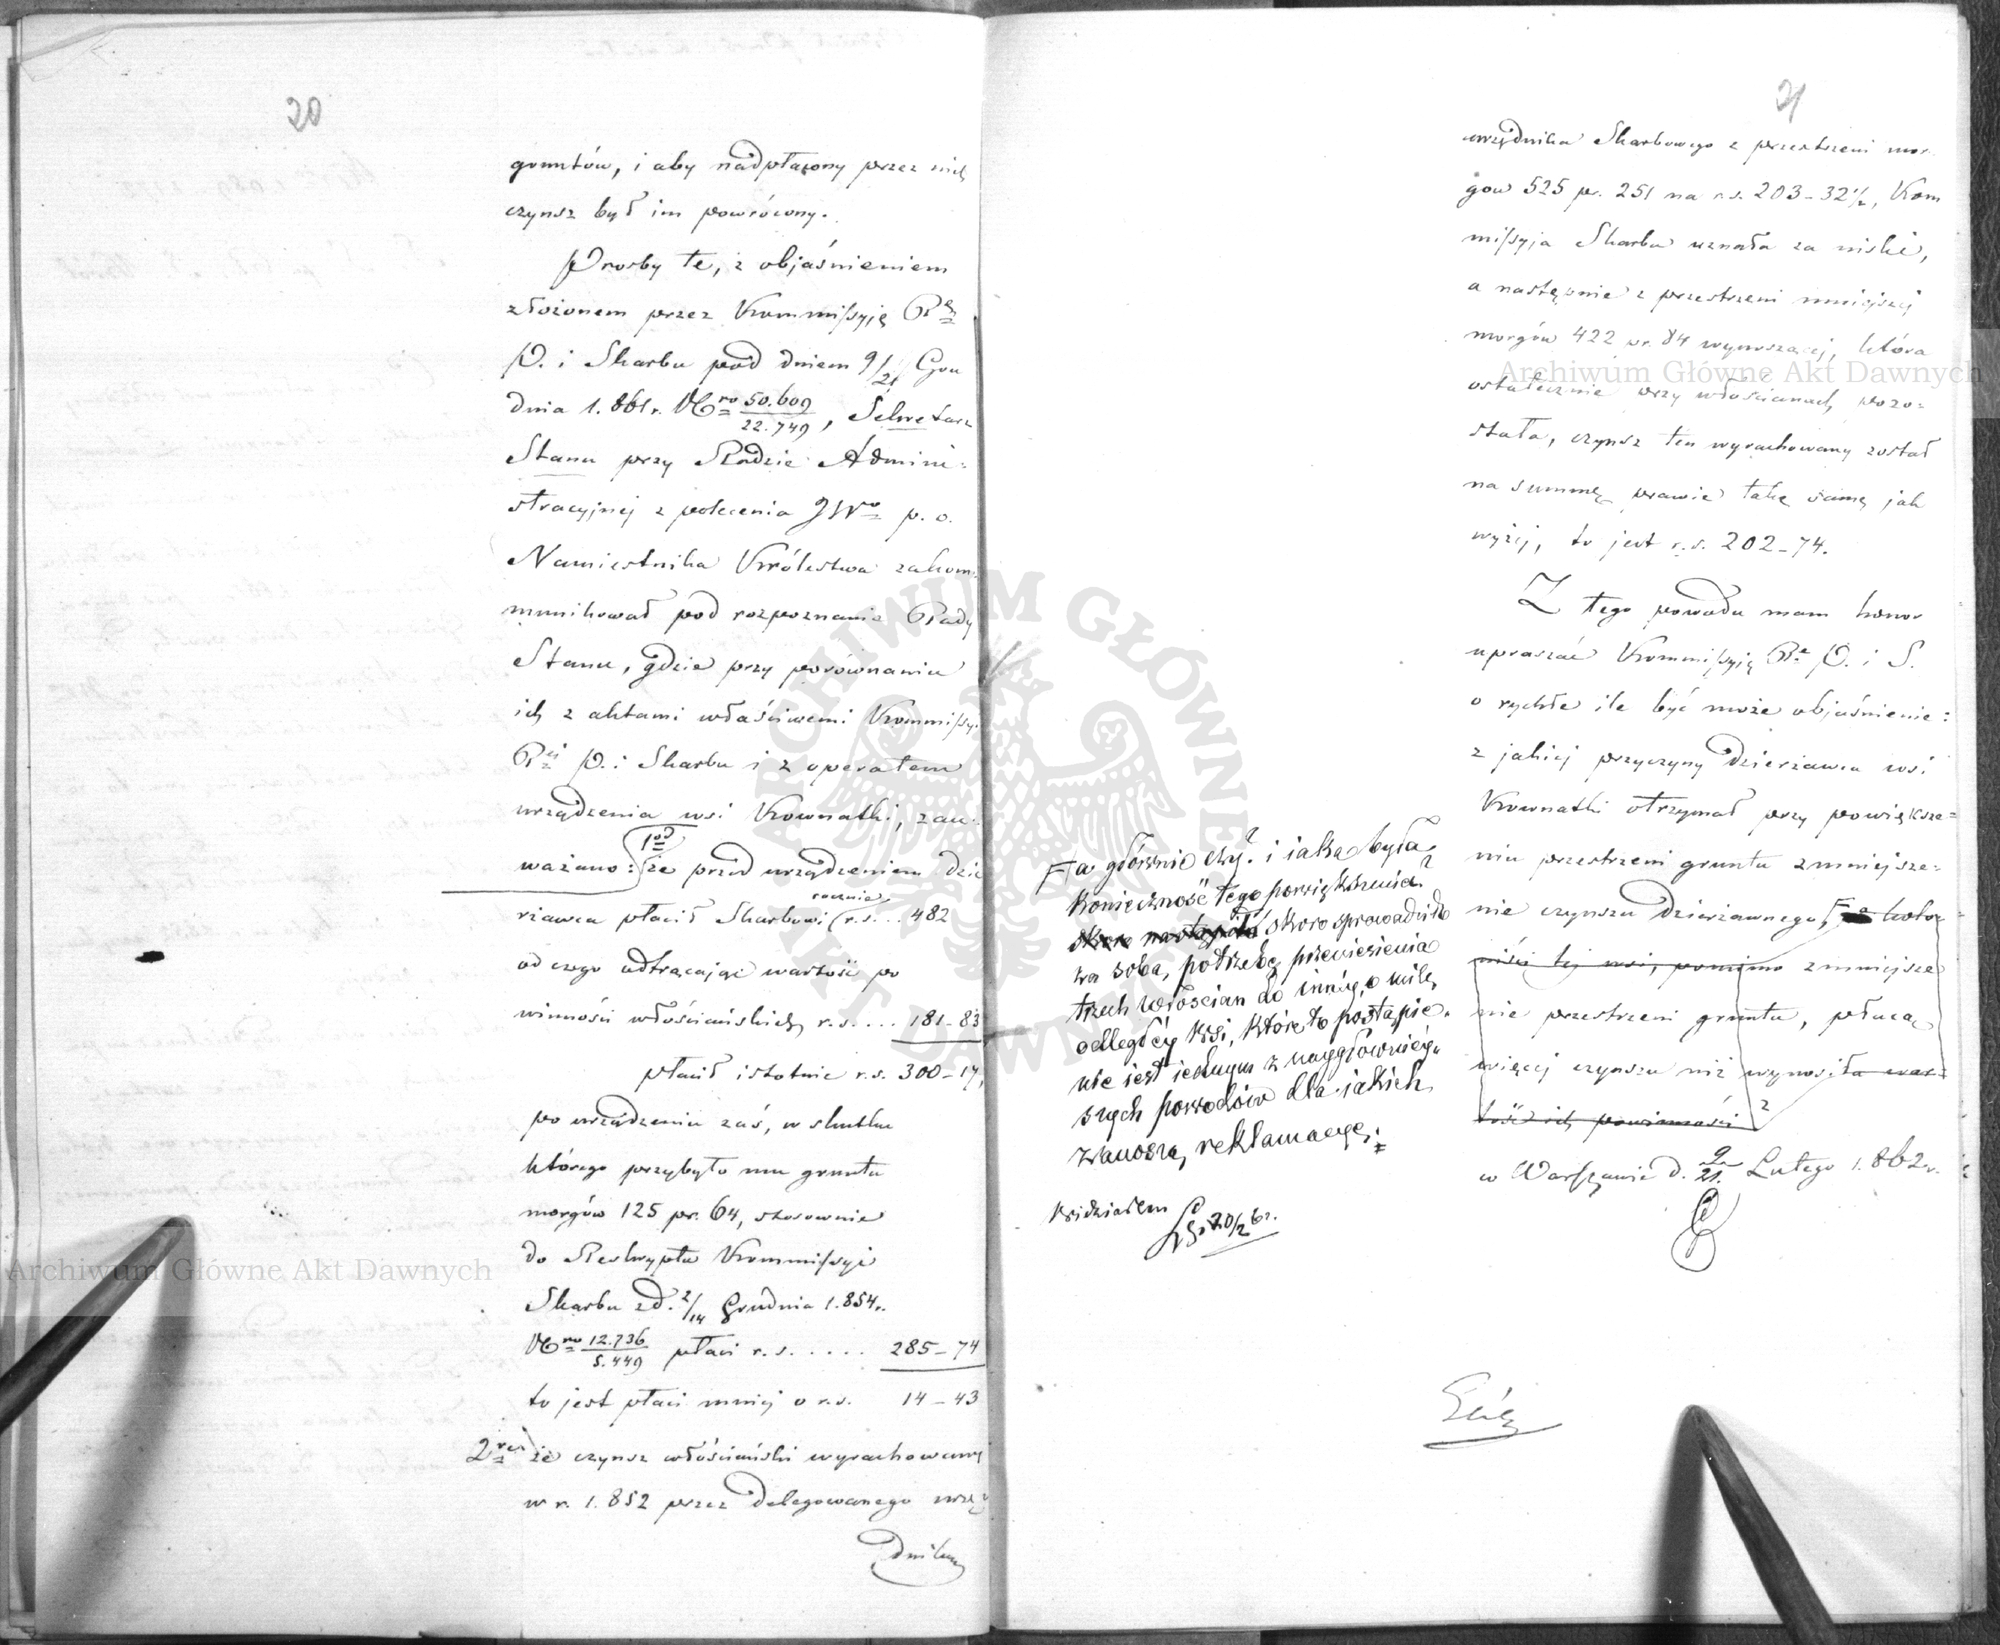 20
gruntów, i aby nadpłacony przez nich
czynsz był im powrócony.
Prośby te, z objaśnieniem
złożonem przez Kommissyję Rą
P. i Skarbu pod dniem 9/21 Gru
dnia 1.861 r. Nro 50.609/22.749, Sekretarz
Stanu przy Radzie Admini=
stracyjnej z polecenia JWo p. o.
Namiestnika Królestwa zakom=
munikował pod rozpoznanie Rady
Stanu, gdzie przy porównaniu
ich z aktami właściwemi Kommissyi
Rei P. i Skarbu i z operatem
urządzenia wsi Kownatki, zau=
ważano: 1od że przed urządzeniem dzie
rżawca płacił Skarbowi rocznie r.s... 482
od czego odtrącając wartość po
winności włościańskich r.s.... 181-83
płacił istotnie r.s. 300-17,
po urządzeniu zaś, w skutku
którego przybyło mu gruntu
morgów 125 pr. 64, stosownie
do Reskryptu Kommissyi
Skarbu z d. 2/14 Grudnia 1.854 r.
Nro 12.736/5.449 płaci r.s. ..... 285-74
to jest płaci mniej o r.s. 14-43
2re że czynsz włościański wyrachowany
w r. 1.852 przez delegowanego urzę
dnika
21
urzędnika Skarbowego z przestrzeni mor
gów 525 pr. 251 na r.s. 203-32½, Kom
missyja Skarbu uznała za niski,
a następnie z przestrzeni mniejszej
morgów 422 pr. 84 wynoszącej, która
ostatecznie przy włościanach pozo=
stała, czynsz ten wyrachowany został
na summę prawie taką samą jak
wyżej, to jest r.s. 202-74.
Z tego powodu mam honor
upraszać Kommissyją Rą P. i S.
o rychłe ile być może objaśnienie:
z jakiej przyczyny dzierżawca wsi
Kownatki otrzymał przy powiększe=
niu przestrzeni gruntu zmniejsze=
nie czynszu dzierżawnego, F a kolo
niści tej wsi, pomimo zmniejsze
nie przestrzeni gruntu, płacą
więcej czynszu niż wynosiła war=
tość ich powinności?
w Warszawie d. 9/21. Lutego 1.862 r.
F a głównie czy? i iaka była
konieczność tego powiększenia?
skoro nastąpiło skoro sprowadziło
za sobą, potrzebę przeniesienia
trzech włościan do innéy, o milę
odległéy wsi, które to postąpie=
nie jest iednym z naygłównéy=
szych powodów dla iakich
zanoszą reklamacye;=
Widziałem
20/2 62 r.
Archiwum Główne Akt Dawnych
Archiwum Główne Akt Dawnych
ARCHIWUM GŁÓWNE AKT DAWNYCH